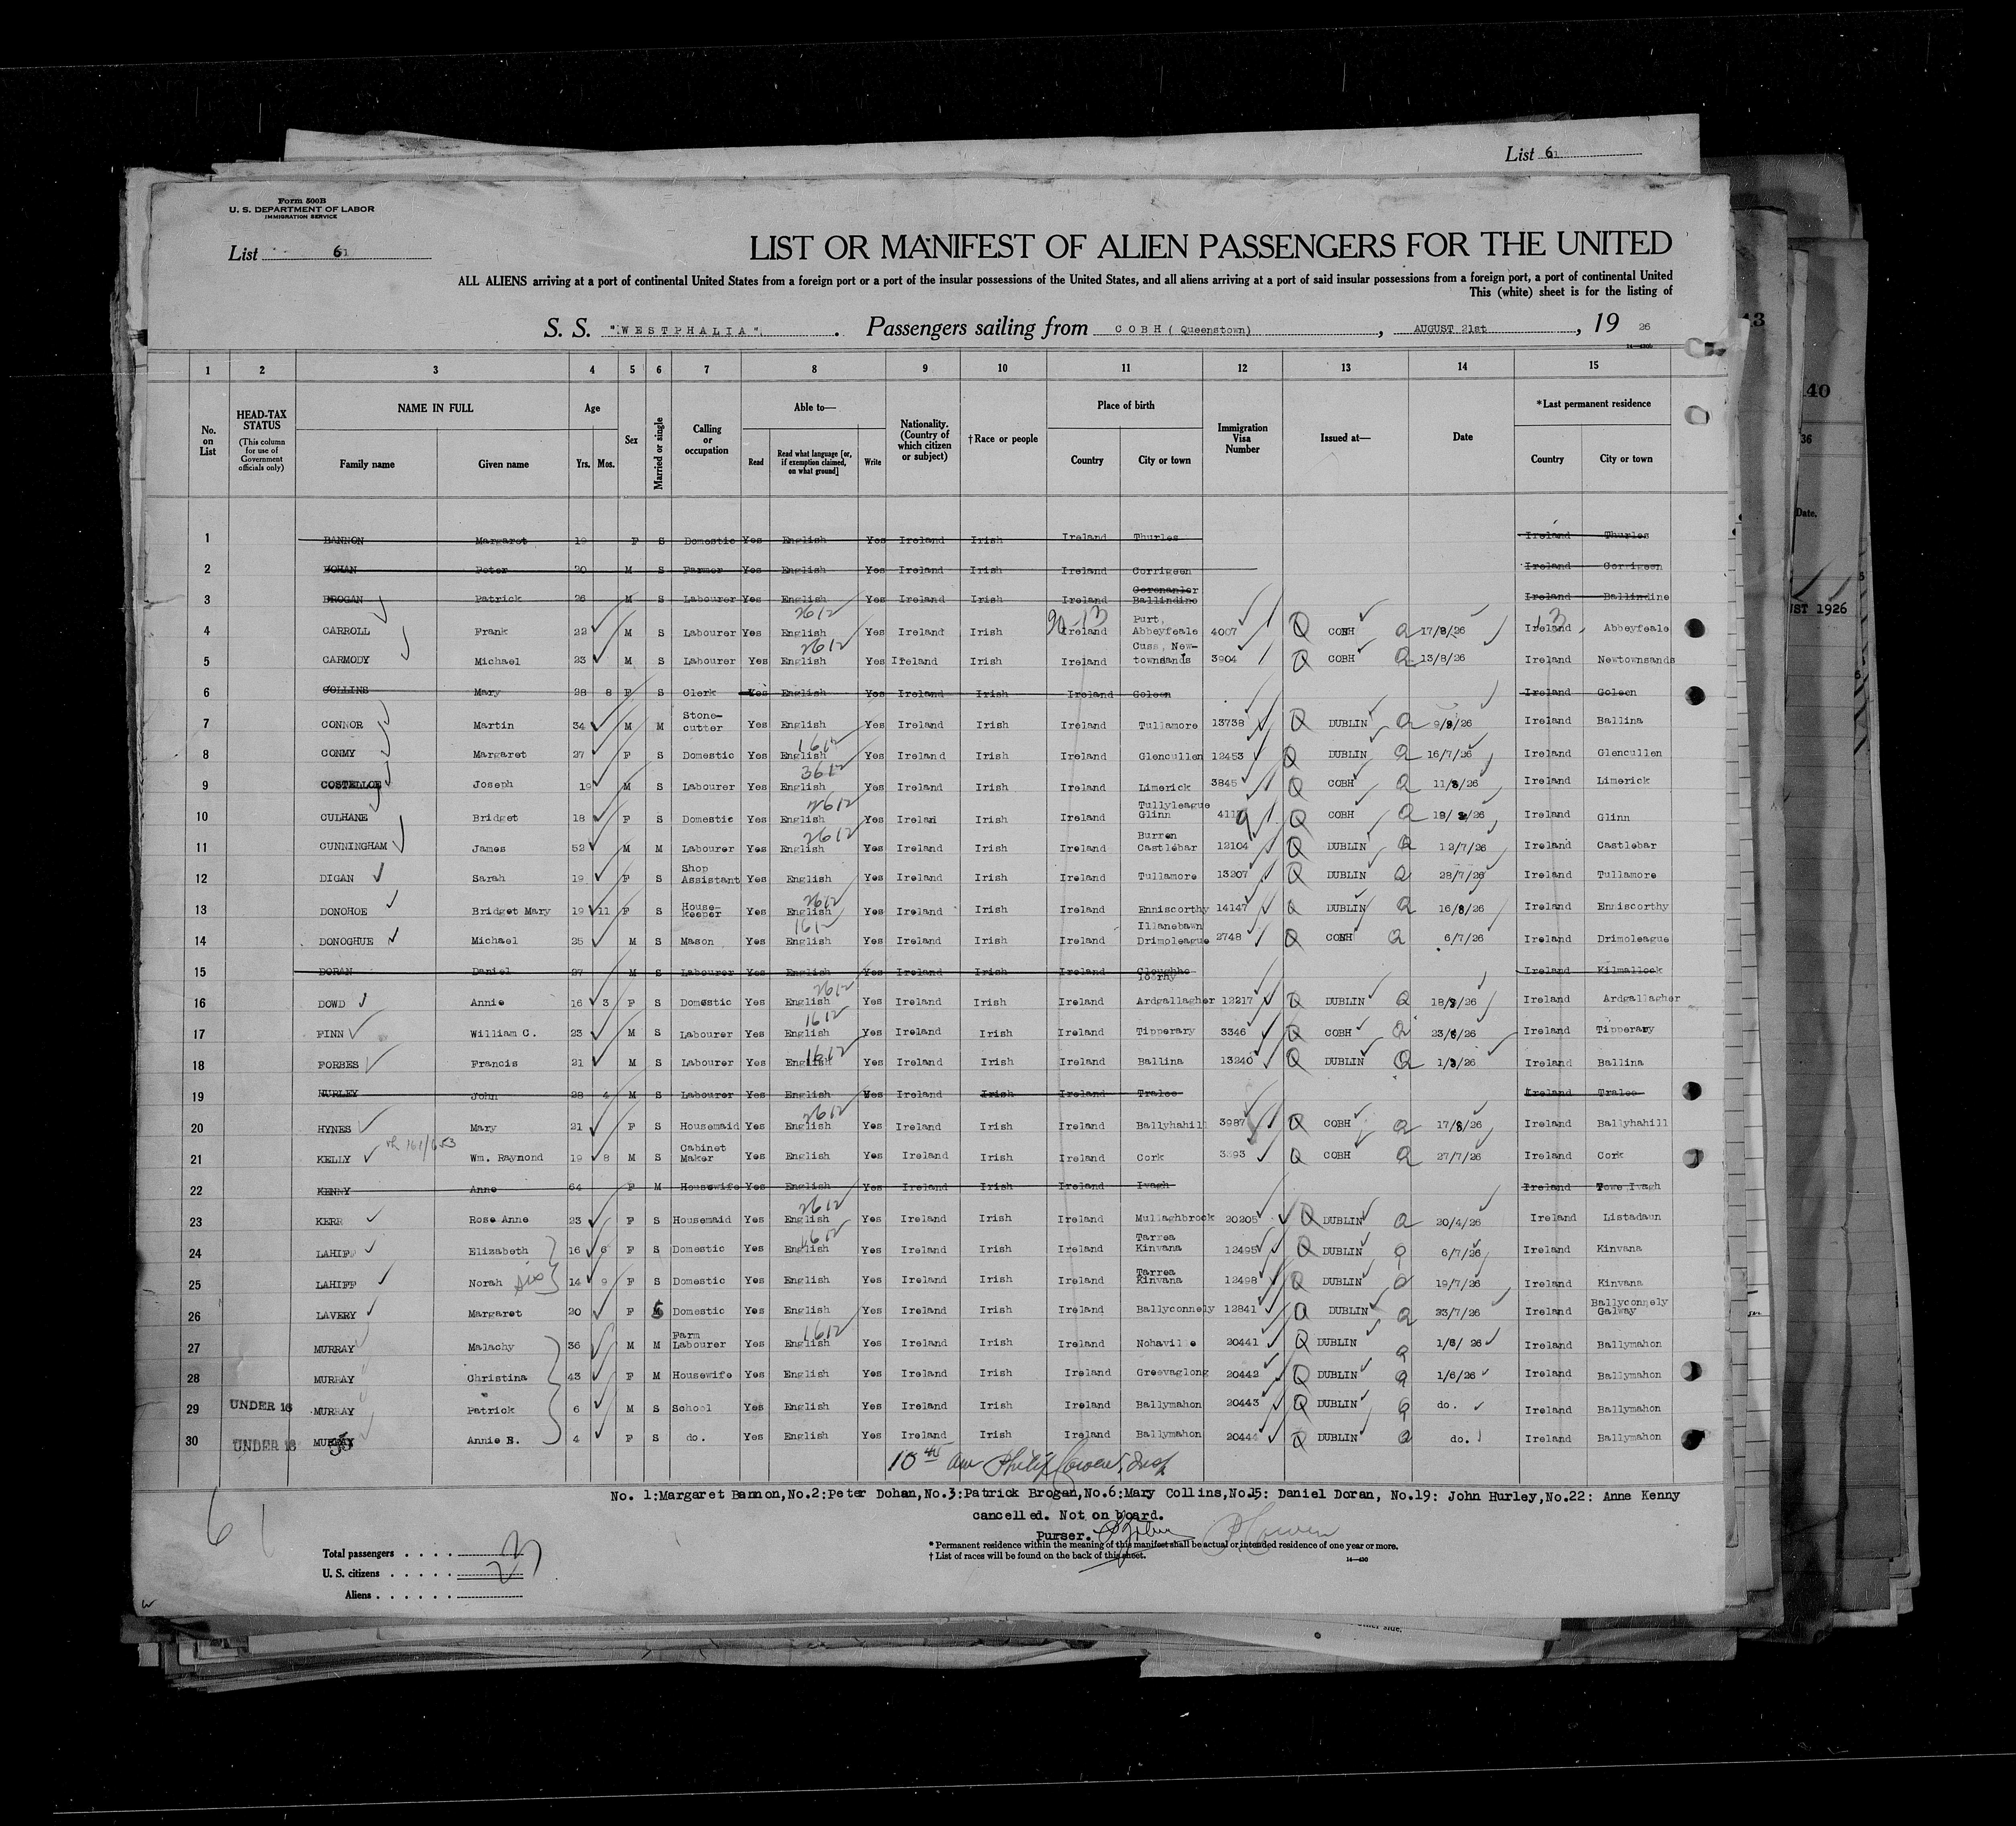 List 61
Form 500B
U. S. DEPARTMENT OF LABOR
IMMIGRATION SERVICE
List 61
LIST OR MANIFEST OF ALIEN PASSENGERS FOR THE UNITED
ALL ALIENS arriving at a port of continental United States from a foreign port or a port of the insular possessions of the United States, and all aliens arriving at a port of said insular possessions from a foreign port, a port of continental United
This (white) sheet is for the listing of
S. S. "WESTPHALIA". Passengers sailing from COBH (Queenstown), AUGUST 21st, 19 26
1 2 3 4 5 6 7 8 9 10 11 12 13 14 15
No. on List HEAD-TAX STATUS (This column for use of Government officials only) NAME IN FULL Family name Given name Age Yrs. Mos. Sex Married or single Calling or occupation Able to— Read Read what language [or, if exemption claimed, on what ground] Write Nationality. (Country of which citizen or subject) †Race or people Place of birth Country City or town Immigration Visa Number Issued at— Date *Last permanent residence Country City or town
1 BANNON Margaret 19 F S Domestic Yes English Yes Ireland Irish Ireland Thurles Ireland Thurles
2 DOHAN Peter 20 M S Farmer Yes English Yes Ireland Irish Ireland Corrigeen Ireland Corrigeen
3 BROGAN Patrick 26 M S Labourer Yes English Yes Ireland Irish Ireland Ballindine Ireland Ballindine
4 CARROLL Frank 22 M S Labourer Yes English 2612 Yes Ireland Irish Ireland Purt, Abbeyfeale 4007 Q COBH 17/8/26 Ireland Abbeyfeale
5 CARMODY Michael 23 M S Labourer Yes English 2612 Yes Ireland Irish Ireland Cuss, New-townsands 3904 Q COBH 13/8/26 Ireland Newtownsands
6 COLLINS Mary 28 8 F S Clerk Yes English Yes Ireland Irish Ireland Goleen Ireland Goleen
7 CONNOR Martin 34 M M Stone-cutter Yes English Yes Ireland Irish Ireland Tullamore 13738 Q DUBLIN 9/8/26 Ireland Ballina
8 CONMY Margaret 27 F S Domestic Yes English 1612 Yes Ireland Irish Ireland Glencullen 12453 Q DUBLIN 16/7/26 Ireland Glencullen
9 COSTELLOE Joseph 19 M S Labourer Yes English 3612 Yes Ireland Irish Ireland Limerick 3845 Q COBH 11/8/26 Ireland Limerick
10 CULHANE Bridget 18 F S Domestic Yes English 2612 Yes Ireland Irish Ireland Tullyleague Glinn Q COBH 18/8/26 Ireland Glinn
11 CUNNINGHAM James 52 M M Labourer Yes English 2612 Yes Ireland Irish Ireland Burren Castlebar 12104 Q DUBLIN 12/7/26 Ireland Castlebar
12 DIGAN Sarah 19 F S Shop Assistant Yes English Yes Ireland Irish Ireland Tullamore 13207 Q DUBLIN 28/7/26 Ireland Tullamore
13 DONOHOE Bridget Mary 19 11 F S House-keeper Yes English 2612 Yes Ireland Irish Ireland Enniscorthy 14147 Q DUBLIN 16/8/26 Ireland Enniscorthy
14 DONOGHUE Michael 25 M S Mason Yes English 1612 Yes Ireland Irish Ireland Illanebawn Drimoleague 2748 Q COBH 6/7/26 Ireland Drimoleague
15 DORAN Daniel 27 M S Labourer Yes English Yes Ireland Irish Ireland Ireland Kilmallock
16 DOWD Annie 16 3 F S Domestic Yes English 2612 Yes Ireland Irish Ireland Ardgallagher 12217 Q DUBLIN 18/8/26 Ireland Ardgallagher
17 FINN William C. 23 M S Labourer Yes English 1612 Yes Ireland Irish Ireland Tipperary 3346 Q COBH 23/6/26 Ireland Tipperary
18 FORBES Francis 21 M S Labourer Yes English 1612 Yes Ireland Irish Ireland Ballina 13240 Q DUBLIN 1/8/26 Ireland Ballina
19 HURLEY John 28 4 M S Labourer Yes English Yes Ireland Irish Ireland Tralee Ireland Tralee
20 HYNES Mary 21 F S Housemaid Yes English 2612 Yes Ireland Irish Ireland Ballyhahill 3987 Q COBH 17/8/26 Ireland Ballyhahill
21 KELLY Wm. Raymond 19 8 M S Cabinet Maker Yes English Yes Ireland Irish Ireland Cork 3393 Q COBH 27/7/26 Ireland Cork
22 KENNY Anne 64 F M Housewife Yes English Yes Ireland Irish Ireland Ivagh Ireland Towe Ivagh
23 KERR Rose Anne 23 F S Housemaid Yes English 2612 Yes Ireland Irish Ireland Mullaghbrook 20205 Q DUBLIN 20/4/26 Ireland Listadaun
24 LAHIFF Elizabeth 16 6 F S Domestic Yes English 1612 Yes Ireland Irish Ireland Tarrea Kinvana 12495 Q DUBLIN 6/7/26 Ireland Kinvana
25 LAHIFF Norah sis 14 9 F S Domestic Yes English Yes Ireland Irish Ireland Tarrea Kinvana 12498 Q DUBLIN 19/7/26 Ireland Kinvana
26 LAVERY Margaret 20 F S Domestic Yes English Yes Ireland Irish Ireland Ballyconnely 12841 Q DUBLIN 23/7/26 Ireland Ballyconnely Galway
27 MURRAY Malachy 36 M M Farm Labourer Yes English 1612 Yes Ireland Irish Ireland Nohaville 20441 Q DUBLIN 1/6/26 Ireland Ballymahon
28 MURRAY Christina 43 F M Housewife Yes English Yes Ireland Irish Ireland Greevaglong 20442 Q DUBLIN 1/6/26 Ireland Ballymahon
29 UNDER 16 MURRAY Patrick 6 M S School Yes English Yes Ireland Irish Ireland Ballymahon 20443 Q DUBLIN do. Ireland Ballymahon
30 UNDER 16 MURRAY Annie E. 4 F S do. Yes English Yes Ireland Irish Ireland Ballymahon 20444 Q DUBLIN do. Ireland Ballymahon
10 45 am Philip Cowen, Insp
No. 1:Margaret Bannon,No.2:Peter Dohan,No.3:Patrick Brogan,No.6:Mary Collins,No.15: Daniel Doran, No.19: John Hurley,No.22: Anne Kenny
cancelled. Not on board.
Purser. P Cowen
61
* Permanent residence within the meaning of this manifest shall be actual or intended residence of one year or more.
† List of races will be found on the back of this sheet.
14—430
Total passengers . . . . 23
U. S. citizens . . . . .
Aliens . . . . . .